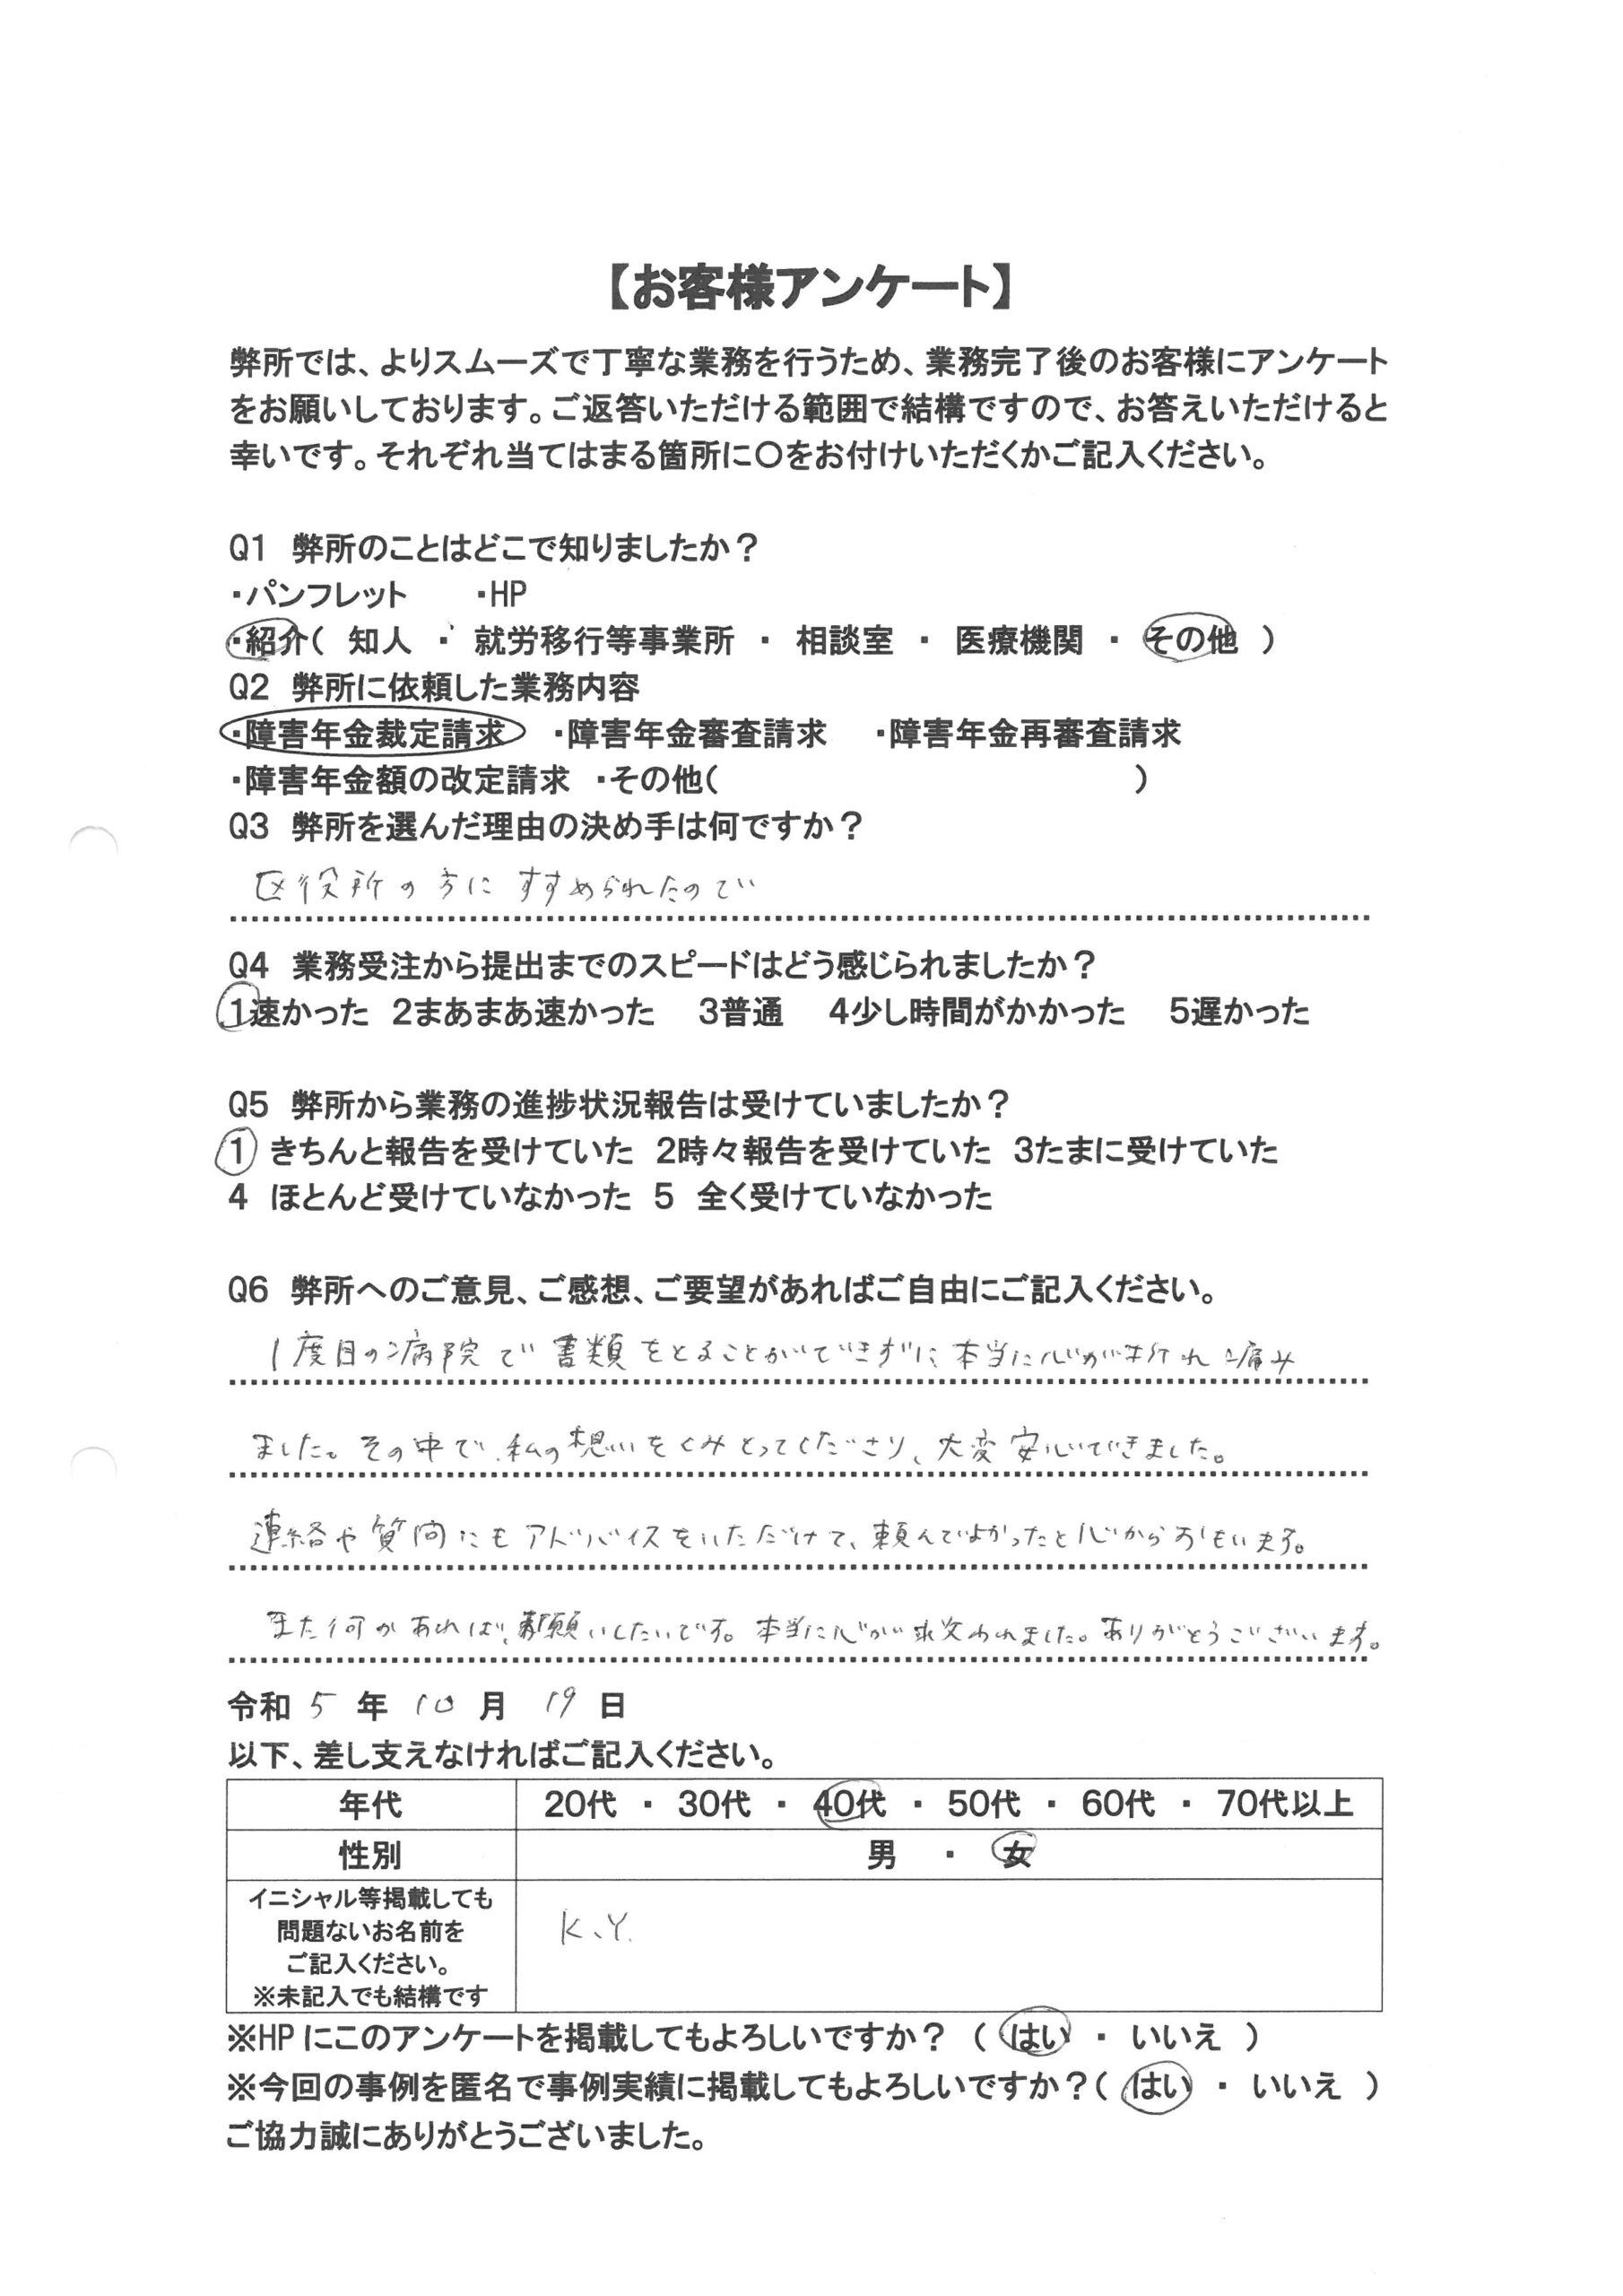 【お客様アンケート】
弊所では、よりスムーズで丁寧な業務を行うため、業務完了後のお客様にアンケート
をお願いしております。ご返答いただける範囲で結構ですので、お答えいただけると
幸いです。それぞれ当てはまる箇所に〇をお付けいただくかご記入ください。
Q1 弊所のことはどこで知りましたか？
・パンフレット ・HP
・紹介( 知人 ・ 就労移行等事業所 ・ 相談室 ・ 医療機関 ・ その他 )
Q2 弊所に依頼した業務内容
・障害年金裁定請求 ・障害年金審査請求 ・障害年金再審査請求
・障害年金額の改定請求 ・その他( )
Q3 弊所を選んだ理由の決め手は何ですか？
区役所の方にすすめられたので
Q4 業務受注から提出までのスピードはどう感じられましたか？
1速かった 2まあまあ速かった 3普通 4少し時間がかかった 5遅かった
Q5 弊所から業務の進捗状況報告は受けていましたか？
1 きちんと報告を受けていた 2時々報告を受けていた 3たまに受けていた
4 ほとんど受けていなかった 5 全く受けていなかった
Q6 弊所へのご意見、ご感想、ご要望があればご自由にご記入ください。
1度目の病院で書類をとることができずに、本当に心が折れ痛み
ました。その中で、私の想いをくみとってくださり、大変安心できました。
連絡や質問にもアドバイスをいただけて、頼んでよかったと心からおもいます。
また何かあれば、お願いしたいです。本当に心が救われました。ありがとうございます。
令和 5 年 10 月 19 日
以下、差し支えなければご記入ください。
年代 20代 ・ 30代 ・ 40代 ・ 50代 ・ 60代 ・ 70代以上
性別 男 ・ 女
イニシャル等掲載しても
問題ないお名前を
ご記入ください。
※未記入でも結構です
K.Y.
※HPにこのアンケートを掲載してもよろしいですか？ ( はい ・ いいえ )
※今回の事例を匿名で事例実績に掲載してもよろしいですか？( はい ・ いいえ )
ご協力誠にありがとうございました。